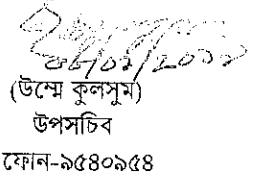 (উম্মে কুলসুম)
উপসচিব
ফোন-৯৫৪০৯৫৪